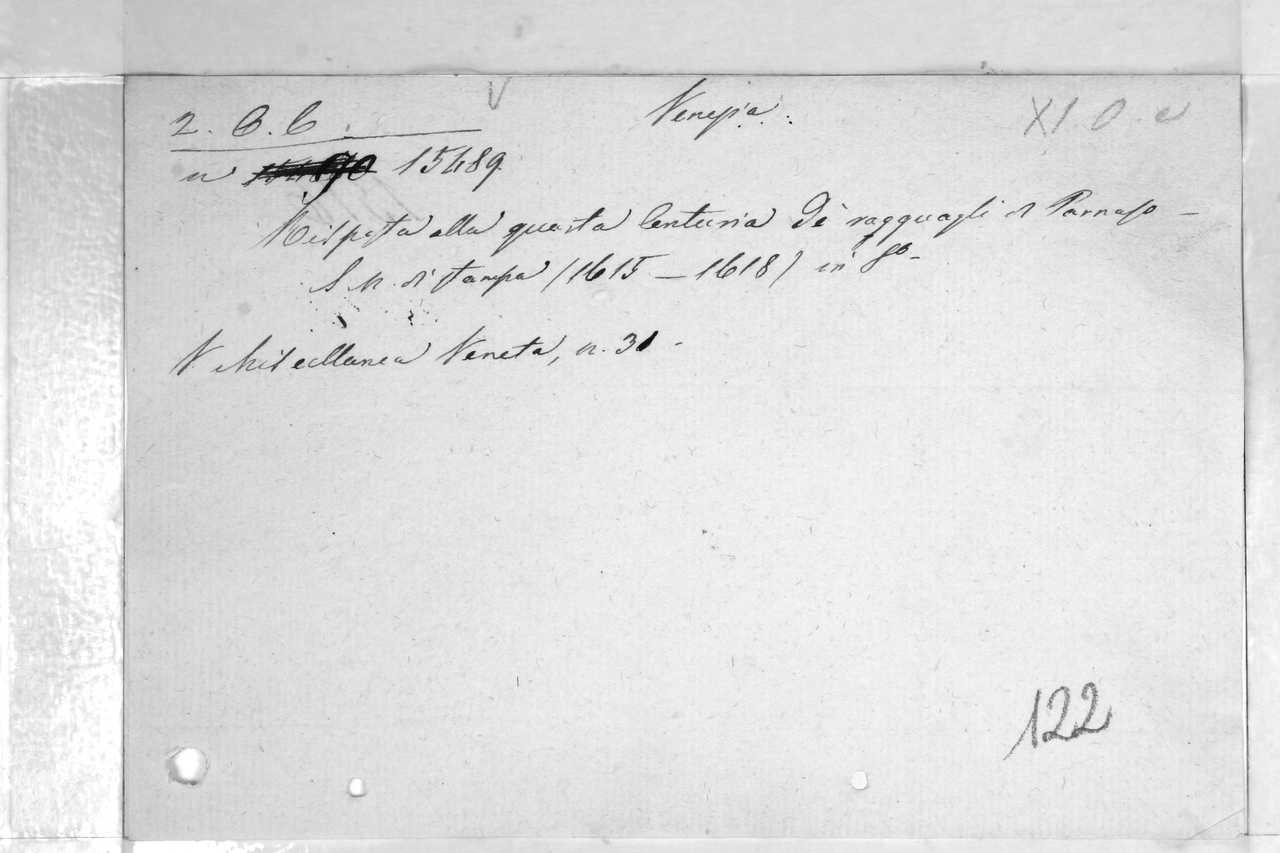 V
2. C. C. Venezia.
XI. O. e
n 15489
Risposta alla quarta Centuria de' ragguagli di Parnaso –
S. N. di stampa (1615 – 1618) in 8º –
V Miscellanea Veneta, n. 31 –
122